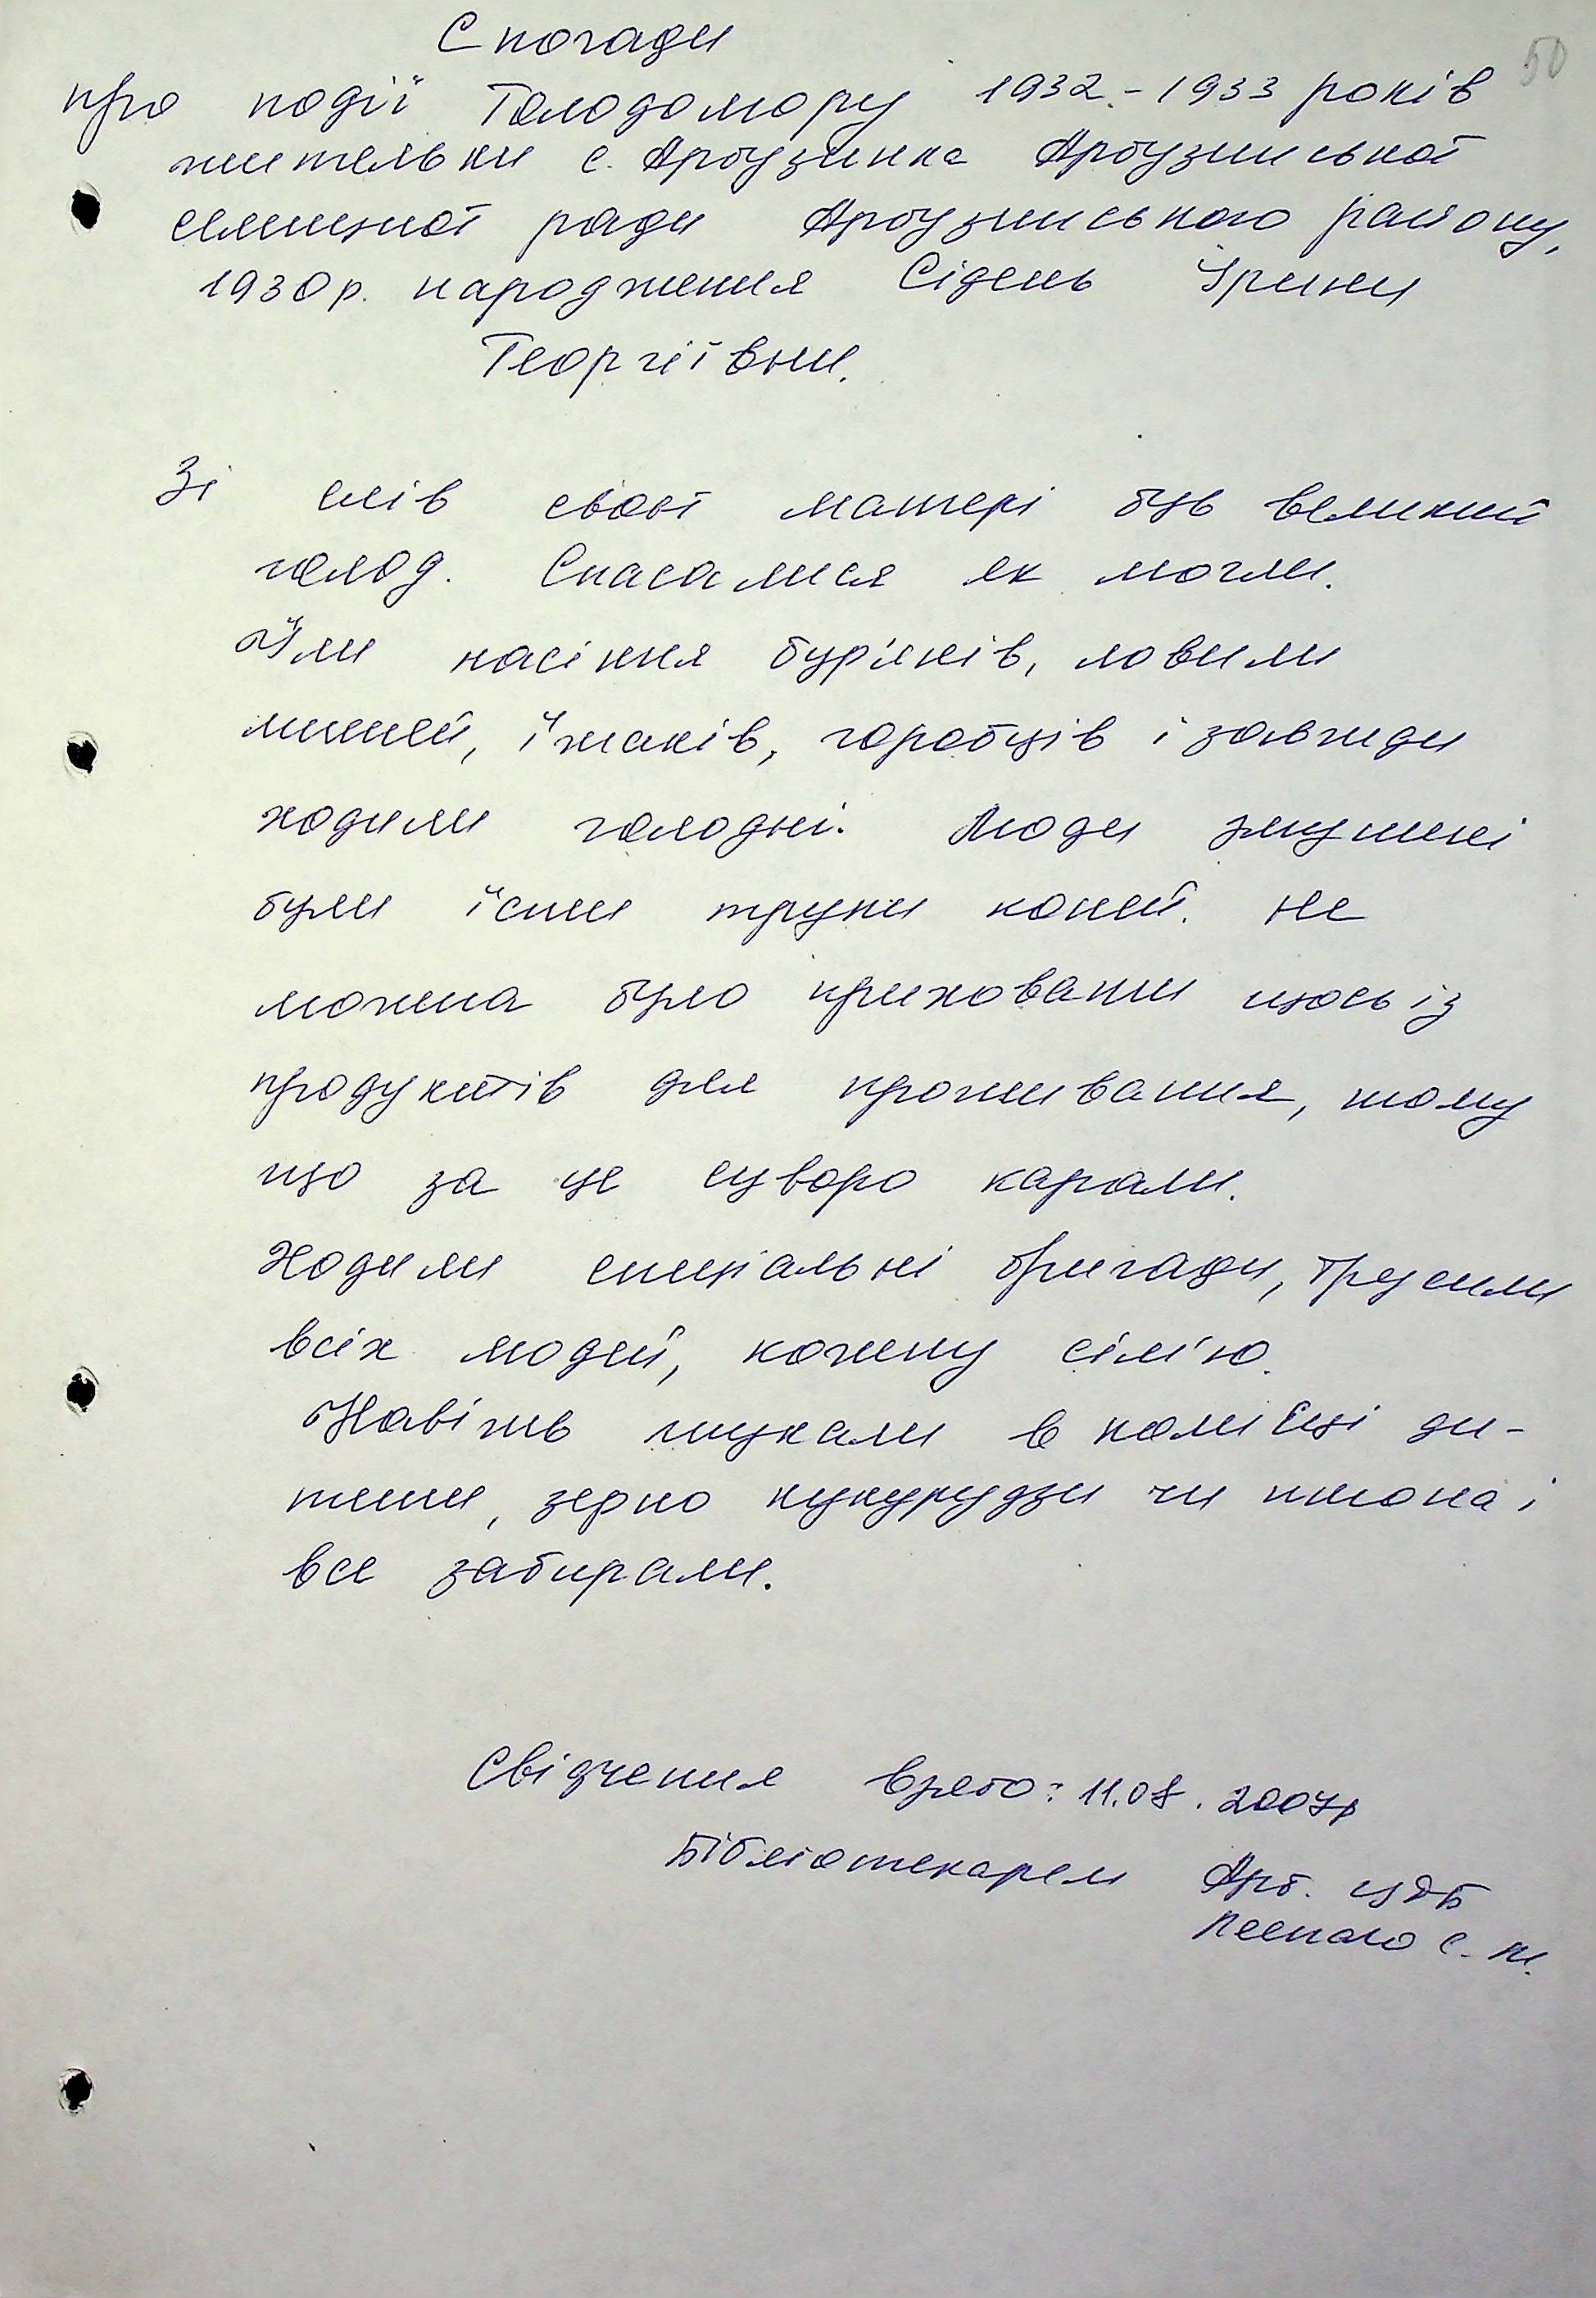 50
Спогади
про події Голодомору 1932.-1933 років
жительки с. Арбузинка Арбузинської
селищної ради Арбузинського району,
1930р. народження Сідень Ірини
Георгіївни.
Зі слів своєї матері був великий
голод. Спасалися як могли.
Їли насіння бур'янів, ловили
мишей, їжаків, горобців і завжди
ходили голодні. Люди змушені
були їсти трупи коней. Не
можна було приховати щось із
продуктів для проживання, тому
що за це суворо карали.
Ходили спеціальні бригади, трусили
всіх людей, кожену сім'ю.
Навіть шукали в колисці ди-
тини, зерно кукурудзи чи пшона і
все забирали.
Свідчення взято: 11.08.2007р
Бібліотекарем Арб. ЦДБ